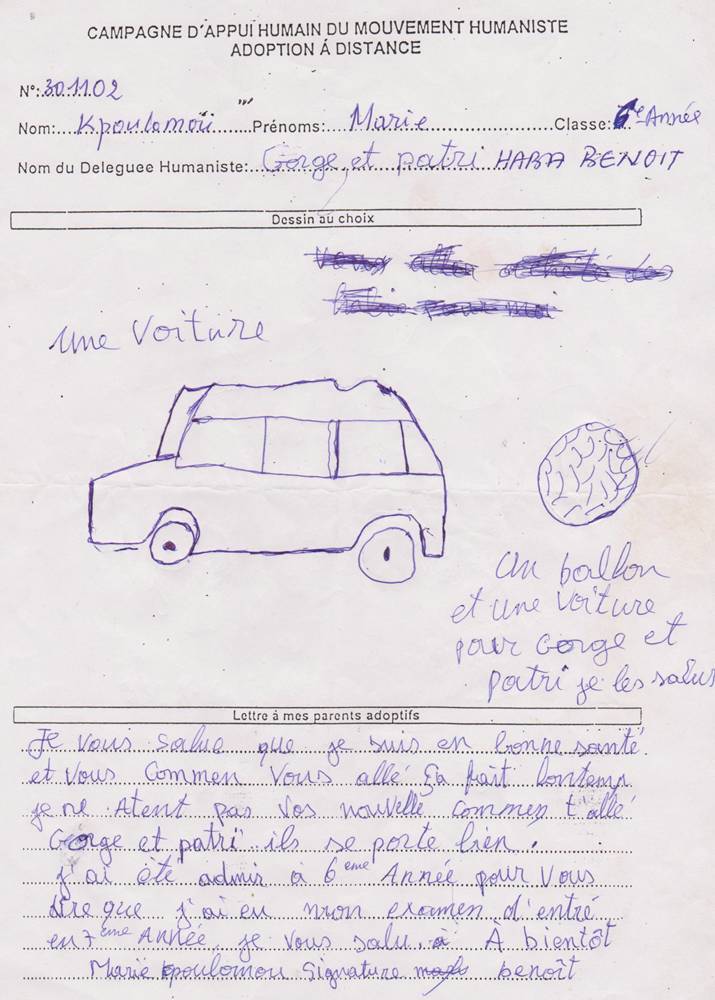 CAMPAGNE D'APPUI HUMAIN DU MOUVEMENT HUMANISTE
ADOPTION Á DISTANCE
N°: 301102
Nom: Kpoulomou Prénoms: Marie Classe: 6e Année
Nom du Deleguee Humaniste: Gorge et patri HABA BENOIT
Dessin au choix
une voiture
un ballon
et une voiture
pour Gorge et
patri je les salus
Lettre à mes parents adoptifs
Je vous salue que je suis en bonne santé
et vous commen vous allé ça fait lontemp
je ne Atent pas vos nouvelle commen t allé
Gorge et patri ils se porte bien.
j'ai été admir à 6eme Année pour vous
dire que j'ai eu mon examen d'entré
en 7eme Année. je vous salu. à À bientôt
Marie Kpoulomou Signature benoît